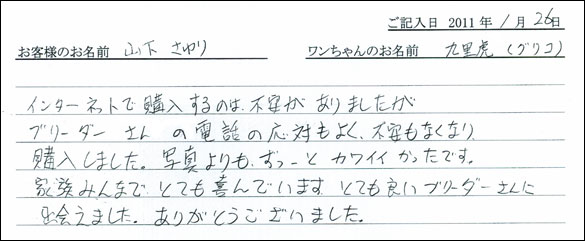 ご記入日 2011年 1月 26日
お客様のお名前 山下 さゆり ワンちゃんのお名前 九里虎(グリコ)
インターネットで購入するのは、不安がありましたが
ブリーダー さん の電話の応対もよく、不安もなくなり
購入しました。写真よりも、ずっーと カワイイかったです。
家族みんなで とても喜んでいます とても良いブリーダーさんに
出会えました。ありがとうございました。